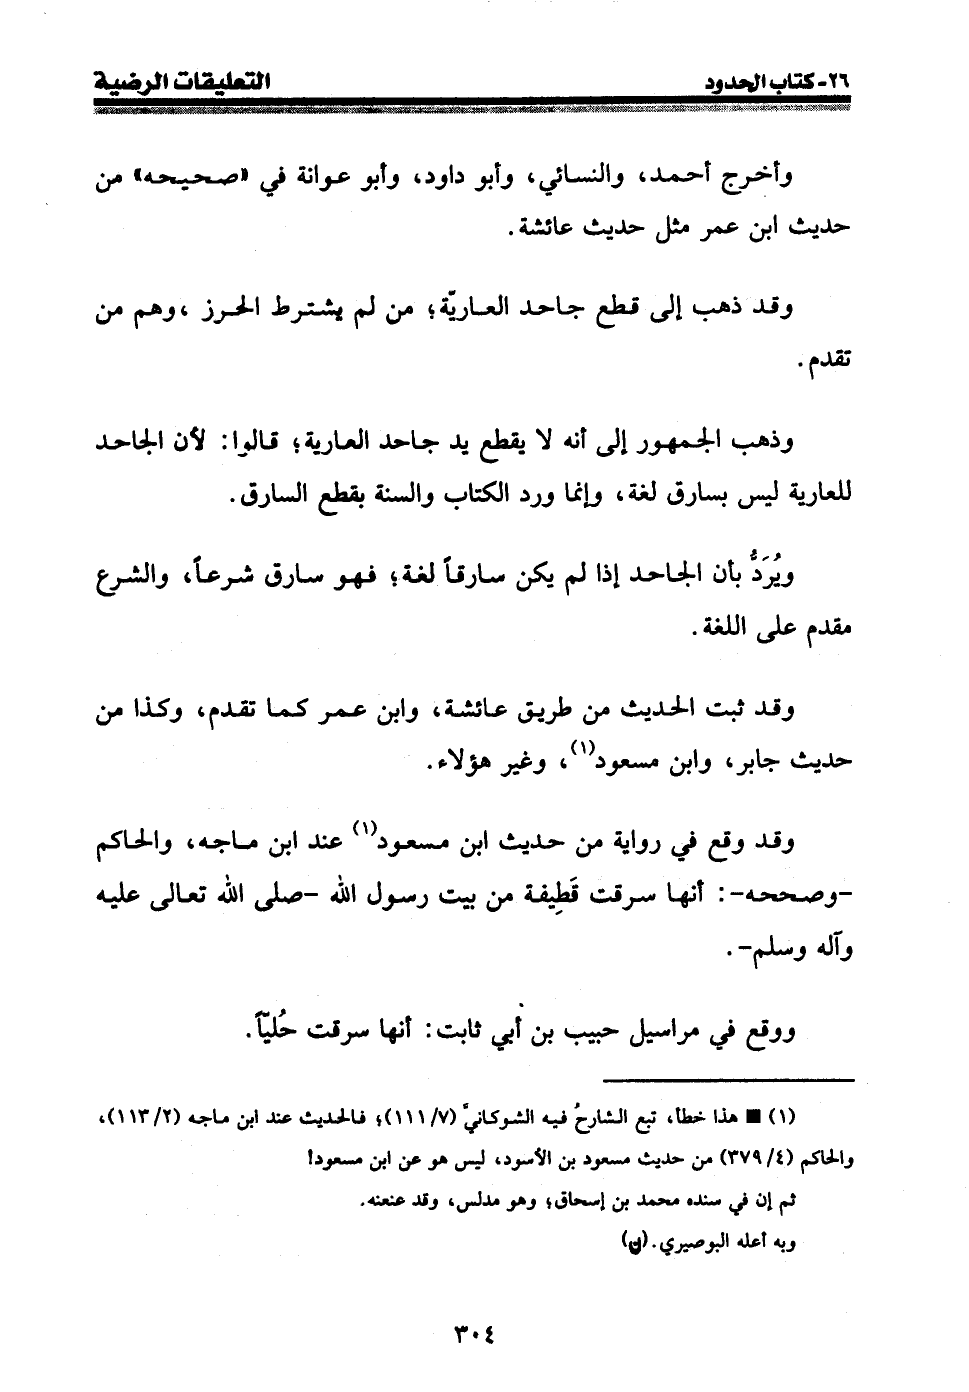 ٢٦- كتاب الحدود التعليقات الرضية
وأخرج أحمد، والنسائي، وأبو داود، وأبو عوانة في «صحيحه» من
حديث ابن عمر مثل حديث عائشة.
وقد ذهب إلى قطع جاحد العاريّة؛ من لم يشترط الحرز ،وهم من
تقدم.
وذهب الجمهور إلى أنه لا يقطع يد جاحد العارية؛ قالوا: لأن الجاحد
للعارية ليس بسارق لغة، وإنما ورد الكتاب والسنة بقطع السارق.
ويُرَدُّ بأن الجاحد إذا لم يكن سارقاً لغة؛ فهو سارق شرعاً، والشرع
مقدم على اللغة.
وقد ثبت الحديث من طريق عائشة، وابن عمر كما تقدم، وكذا من
حديث جابر، وابن مسعود(١)، وغير هؤلاء.
وقد وقع في رواية من حديث ابن مسعود(١) عند ابن ماجه، والحاكم
-وصححه-: أنها سرقت قَطِيفة من بيت رسول الله -صلى الله تعالى عليه
وآله وسلم-.
ووقع في مراسيل حبيب بن أبي ثابت: أنها سرقت حُليّاً.
(١) ■ هذا خطأ، تبع الشارحُ فيه الشوكانيَّ (٧/ ١١١)؛ فالحديث عند ابن ماجه (٢/ ١١٣)،
والحاكم (٤/ ٣٧٩) من حديث مسعود بن الأسود، ليس هو عن ابن مسعود!
ثم إن في سنده محمد بن إسحاق؛ وهو مدلس، وقد عنعنه.
وبه أعله البوصيري. (ن)
٣٠٤